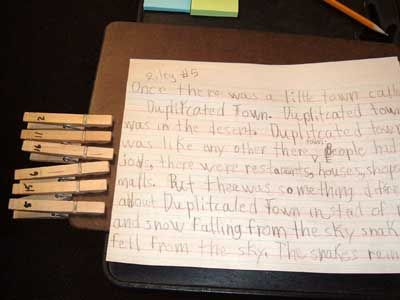 riley #5
Once there was a little town calle
Duplitcated Town. Duplitcated town
was in the desert. Duplitcated town
town
was like any other there people had
jobs, there were restarants, houses, shops
malls. But there was something differe
about Duplitcated Town instad of r
and snow falling from the sky snak
fell from the sky. The snakes rain
2
11
16
6
15
8